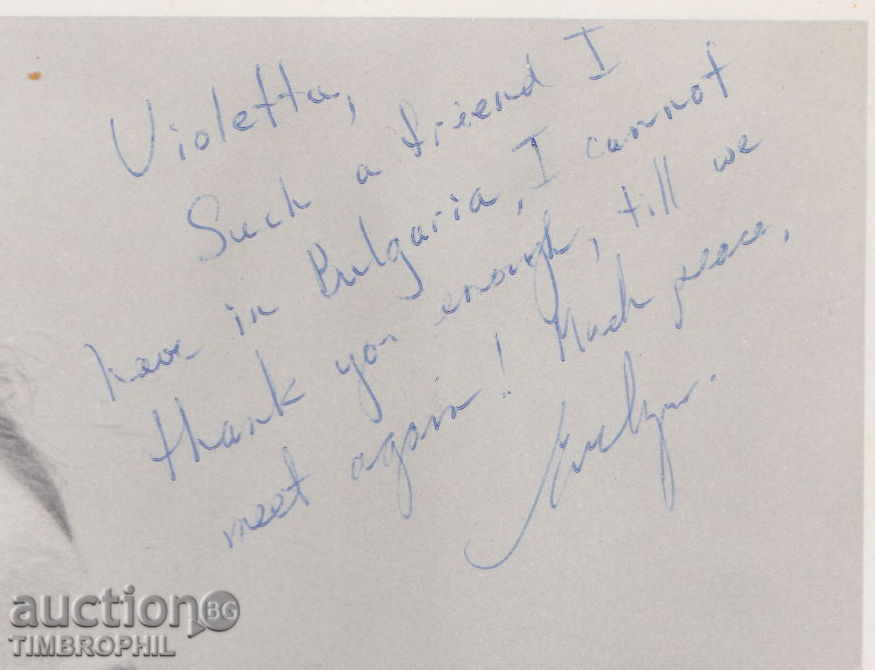 Violetta,
Such a friend I
have in Bulgaria, I cannot
thank you enough, till we
meet again! Much peace,
Evelyn.
auction BG
TIMBROPHIL